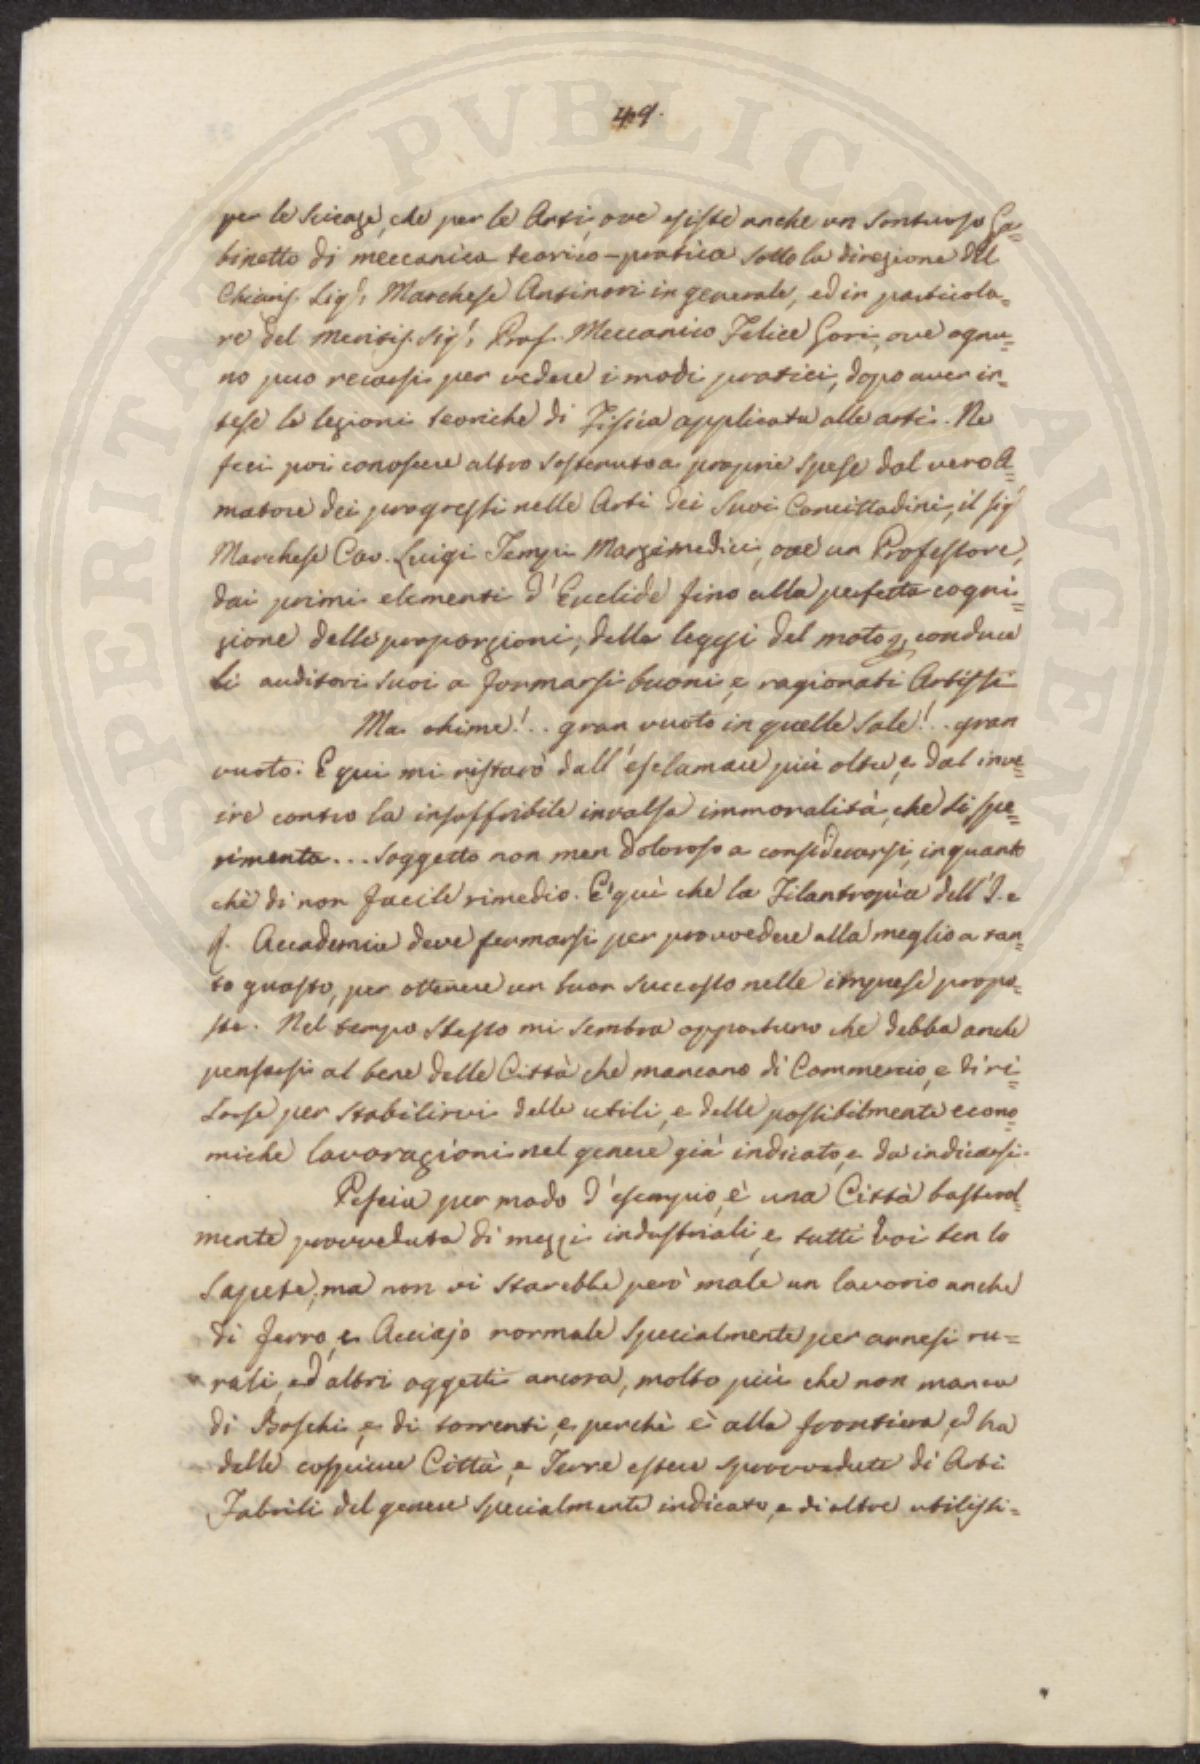 49.
per le Scienze, che per le Arti, ove esiste anche un Sontuoso Ga=
binetto di meccanica teorico-pratica sotto la direzione del
Chiaris. Sig.r Marchese Antinori in generale, ed in particola=
re del meritis. Sig.r Prof. Meccanico Felice Gori, ove ognu=
no puo recarsi per vedere i modi pratici, dopo aver in=
tese le lezioni teoriche di Fisica applicata alle arti. Ne
feci poi conoscere altro sostenuto a proprie spese dal vero A=
matore dei progressi nelle Arti dei Suoi Concittadini, il Sig.r
Marchese Cav. Luigi Tempi Marzimedici, ove un Professore,
dai primi elementi d'Euclide fino alla perfetta cogni=
zione delle proporzioni, della leggi del moto, conduce
li auditori suoi a formarsi buoni, e ragionati Artisti
Ma ohime!.. gran vuoto in quelle Sale!.. gran
vuoto. E qui mi ristarò dall'esclamare più oltre, e dal inve=
ire contro la insoffribile invalsa immoralità, che si spe=
rimenta... soggetto non men doloroso a considerarsi, inquanto
chè di non facile rimedio. E' quì che la Filantropia dell'I. e
R. Accademia deve fermarsi per provvedere alla meglio a tan=
to guasto, per ottenere un buon successo nelle imprese propo=
ste. Nel tempo stesso mi sembra opportuno che debba anche
pensarsi al bene delle Città che mancano di Commercio, e di ri=
sorse per stabilirvi delle utili, e delle possibilmente econo=
miche lavorazioni nel genere già indicato, e da indicarsi.
Pescia per modo d'esempio, è una Città bastevol=
mente provveduta di mezzi industriali, e tutti voi ben lo
Sapete, ma non vi starebbe però male un lavorio anche
di ferro, e Acciajo normale specialmente per arnesi ru=
rali, ed altri oggetti ancora, molto più che non manca
di Boschi, e di torrenti, e perchè è alla frontiera, ed ha
delle cospicue Città, e Terre estere sprovvedute di Arti
Fabrili del genere specialmente indicato, e di altre utilissi=